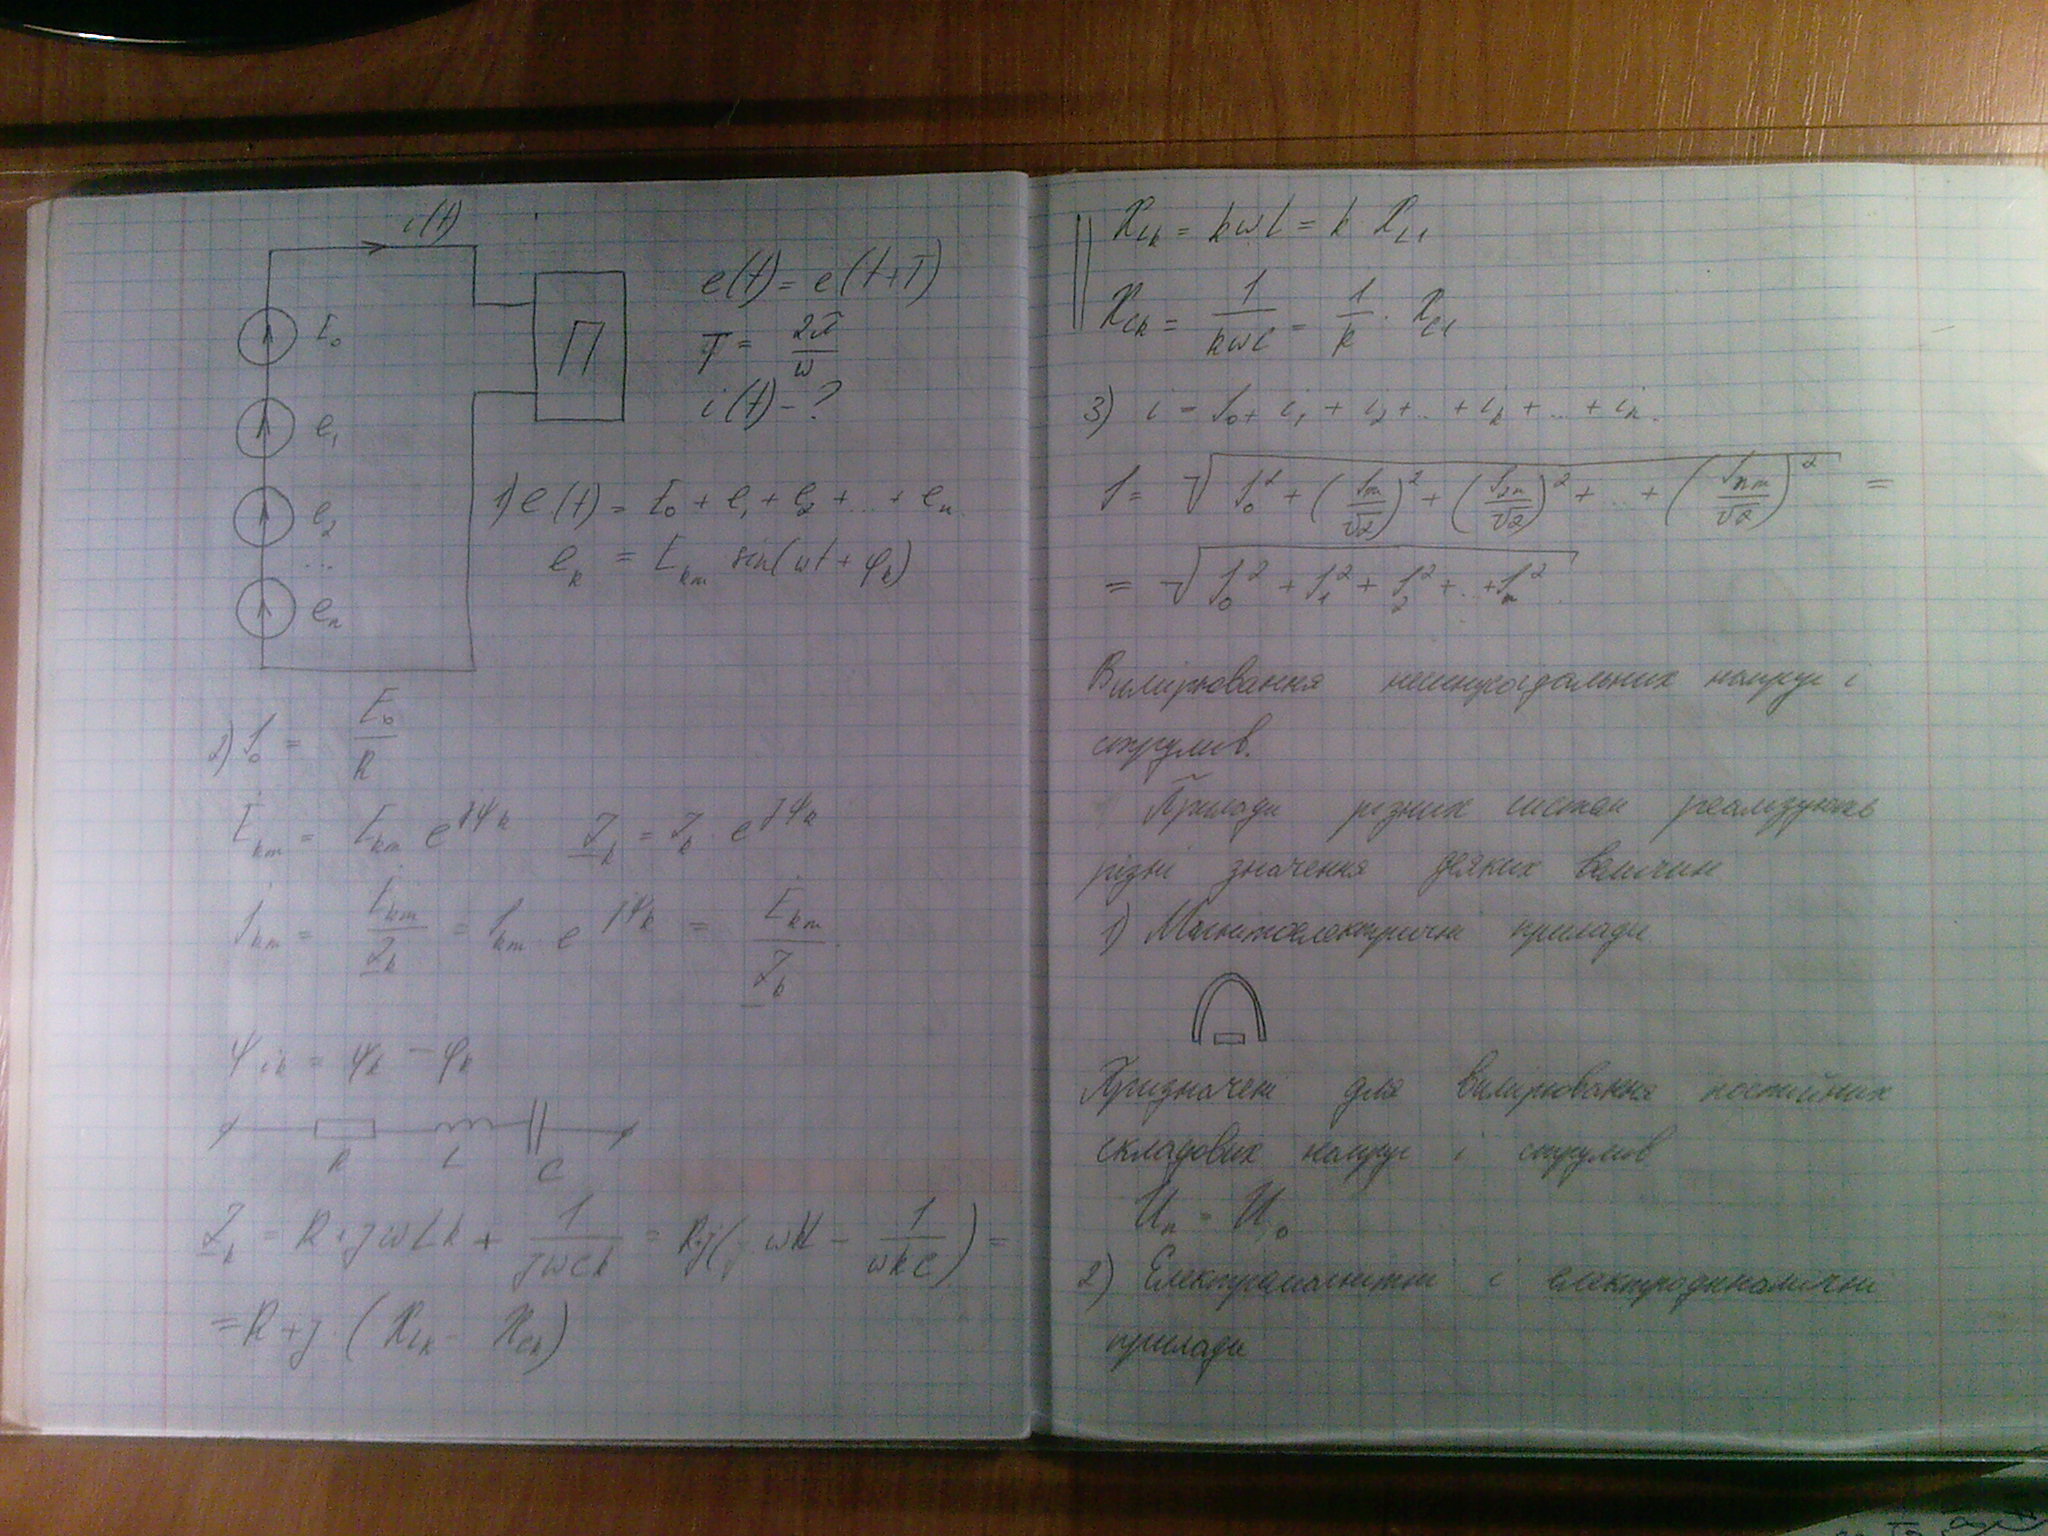 i(t)
E₀
e₁
e₂
...
eₙ
П
e(t) = e(t+T)
T = 2π/ω
i(t) - ?
1) e(t) = E₀ + e₁ + e₂ + ... + eₙ.
eₖ = Eₖₘ sin(ωt + φₖ)
2) I₀ = E₀/R
Ėₖₘ = Eₖₘ e^jψₖ   Z̲ₖ = Zₖ e^jφₖ
İₖₘ = Ėₖₘ/Z̲ₖ = Iₖₘ e^jψₖ = Ėₖₘ/Z̲ₖ
ψiₖ = ψₖ - φₖ
R L C
Z̲ₖ = R + jωLk + 1/(jωCk) = R+j( ωkL - 1/(ωkC)) =
= R + j · (X_Lk - X_Ck)
X_Lk = kωL = k · X_L1
X_Ck = 1/(kωC) = 1/k · X_C1
3) i = I₀ + i₁ + i₂ + ... + iₖ + ... + iₙ.
I = √(I₀² + (I₁ₘ/√2)² + (I₂ₘ/√2)² + ... + (Iₙₘ/√2)²) =
= √(I₀² + I₁² + I₂² + ... + Iₙ²)
Вимірювання несинусоїдальних напруг і
струмів.
Прилади різних систем реалізують
різні значення деяких величин
1) Магнітоелектричні прилади
Призначені для вимірювання постійних
складових напруг і струмів
Uп = U₀
2) Електромагнітні і електродинамічні
прилади